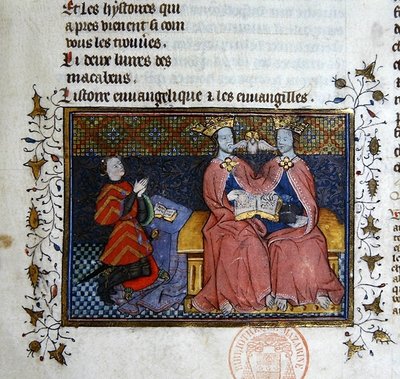 Et les hystoires qui
apres vienent si com
vous les trouues.
Li deux liures des
macabeus.
Listoire euuangelique & les euuangilles.